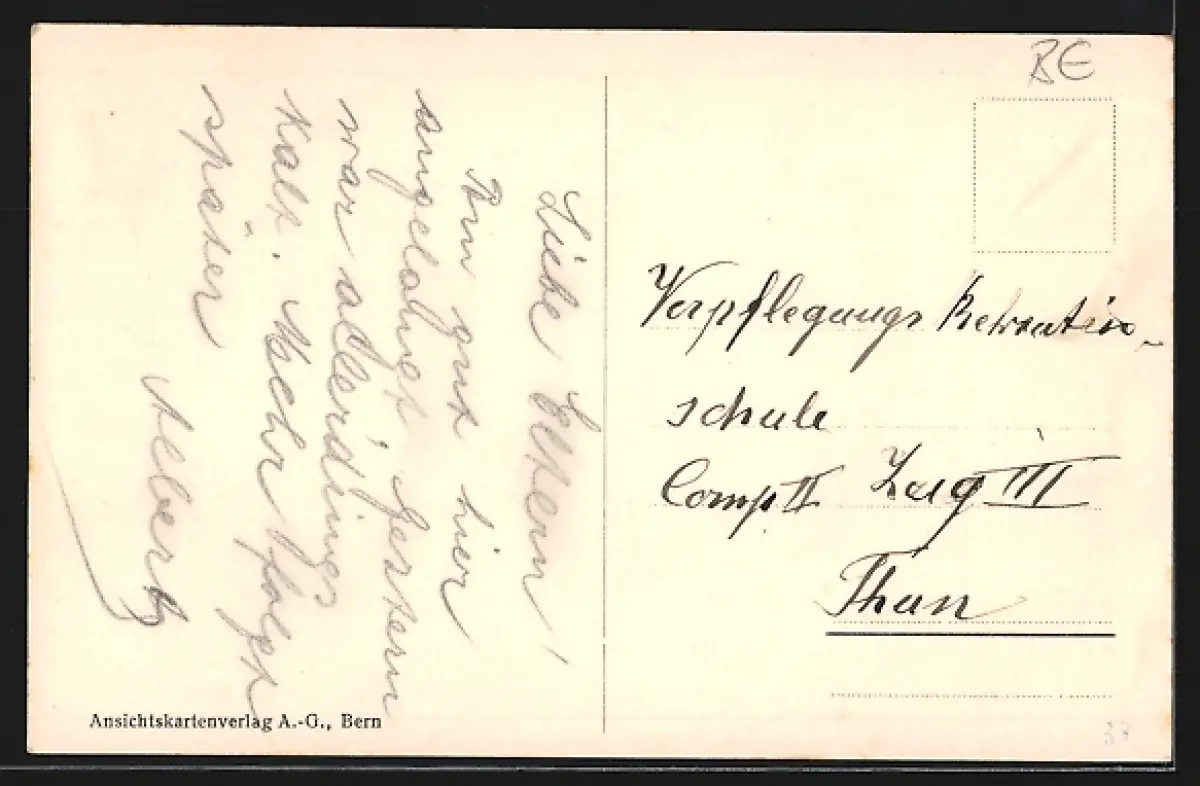 Liebe Eltern!
Bin gut hier
angelangt, gestern
war allerdings
kalt. Mehr folgt
später
Albert
Ansichtskartenverlag A.-G., Bern
BE
Verpflegungs Rekruten-
schule
Comp II Zug III
Thun